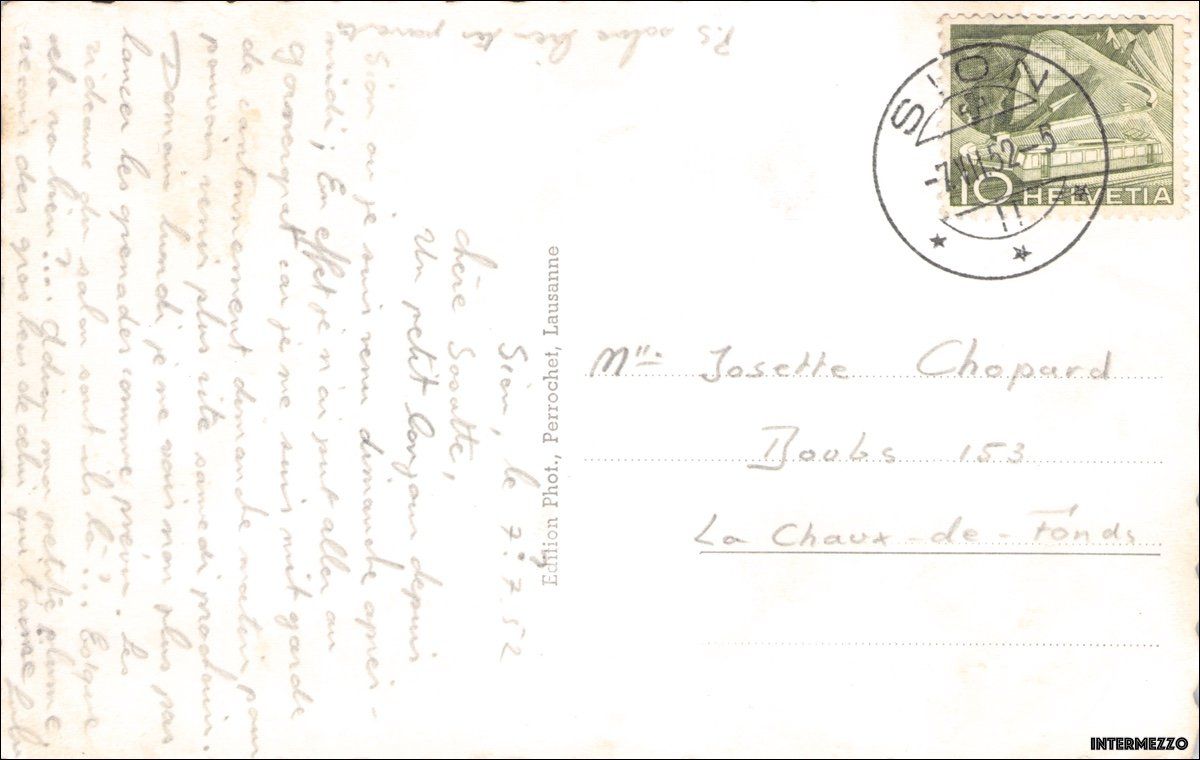 Sion, le 7.7.52
chère Josette,
Un petit bonjour depuis
Sion où je suis venu dimanche après-
midi; En effet je n'ai put aller au
car je me suis mit garde
de cantonnement dimanche matin pour
pouvoir venir plus vite samedi prochain.
Demain lundi je ne sais non plus pas
lancer les grenades comme prévu. Les
rideaux du salon sont-ils là... Est-ce que
cela va bien... Adieu ma petite
reçois des gros de celui qui t'aime
P.S. salue bien tes parents
Edition Phot., Perrochet, Lausanne
SION
-7.VII.52-5
10 HELVETIA
Mlle Josette Chopard
Doubs 153
La Chaux-de-Fonds
INTERMEZZO